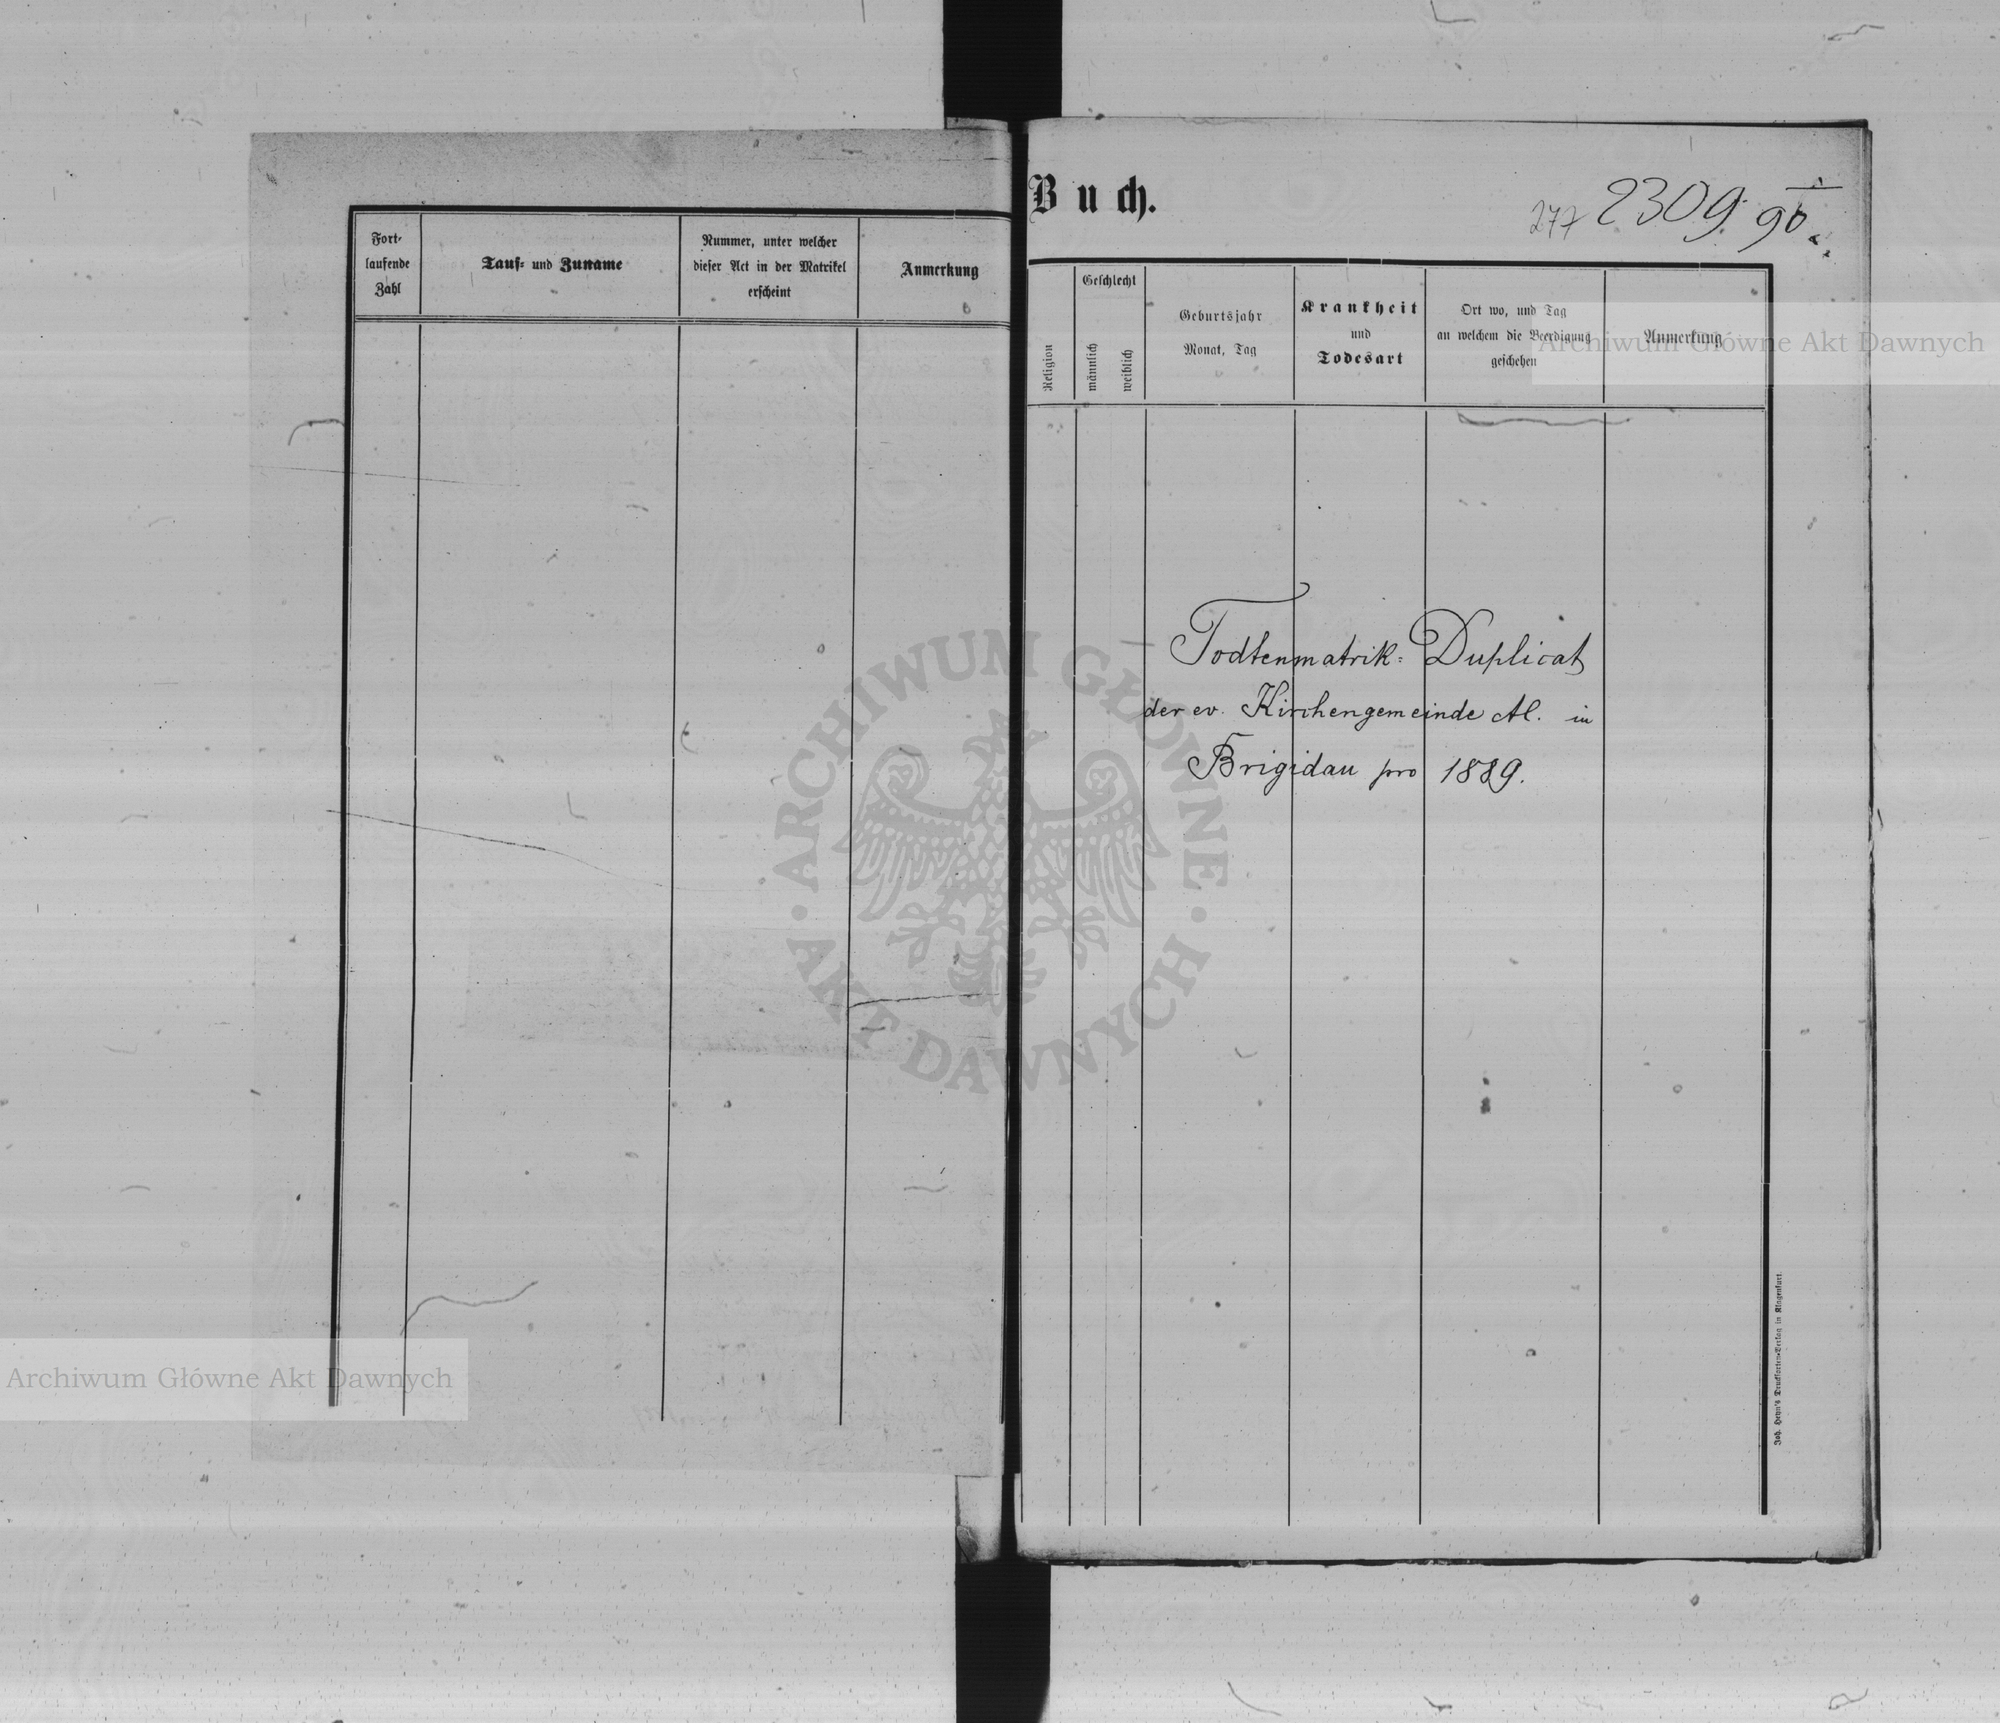 Fort-
laufende
Zahl
Tauf- und Zuname
Nummer, unter welcher
dieser Act in der Matrikel
erscheint
Anmerkung
Buch.
277 2309. 90
Religion
Geschlecht
männlich
weiblich
Geburtsjahr
Monat, Tag
Krankheit
und
Todesart
Ort wo, und Tag
an welchem die Beerdigung
geschehen
Anmerkung
Archiwum Główne Akt Dawnych
Todtenmatrik- Duplicat
der ev. Kirchengemeinde AC. in
Brigidau pro 1889.
ARCHIWUM GŁÓWNE
AKT DAWNYCH
Joh. Heyn's Drucksorten-Verlag in Klagenfurt.
Archiwum Główne Akt Dawnych